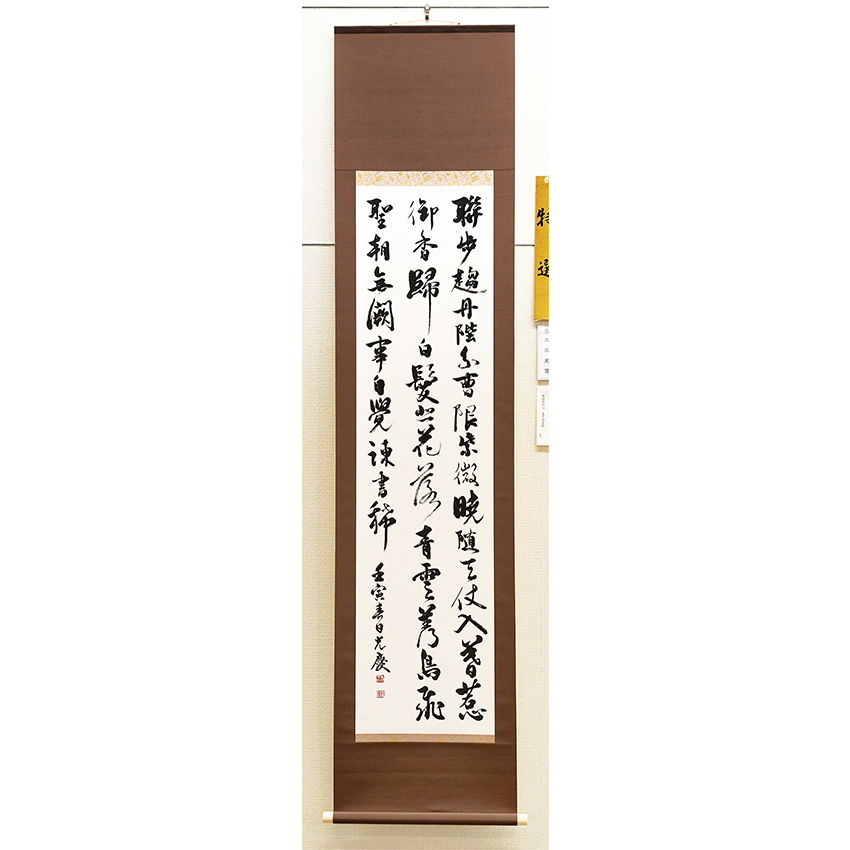 聯步趨丹陛分曹限紫微曉随天仗入暮惹
御香歸白髮悲花落青雲羨鳥飛
聖朝無闕事自覺諫書稀
壬寅春日光慶
特選